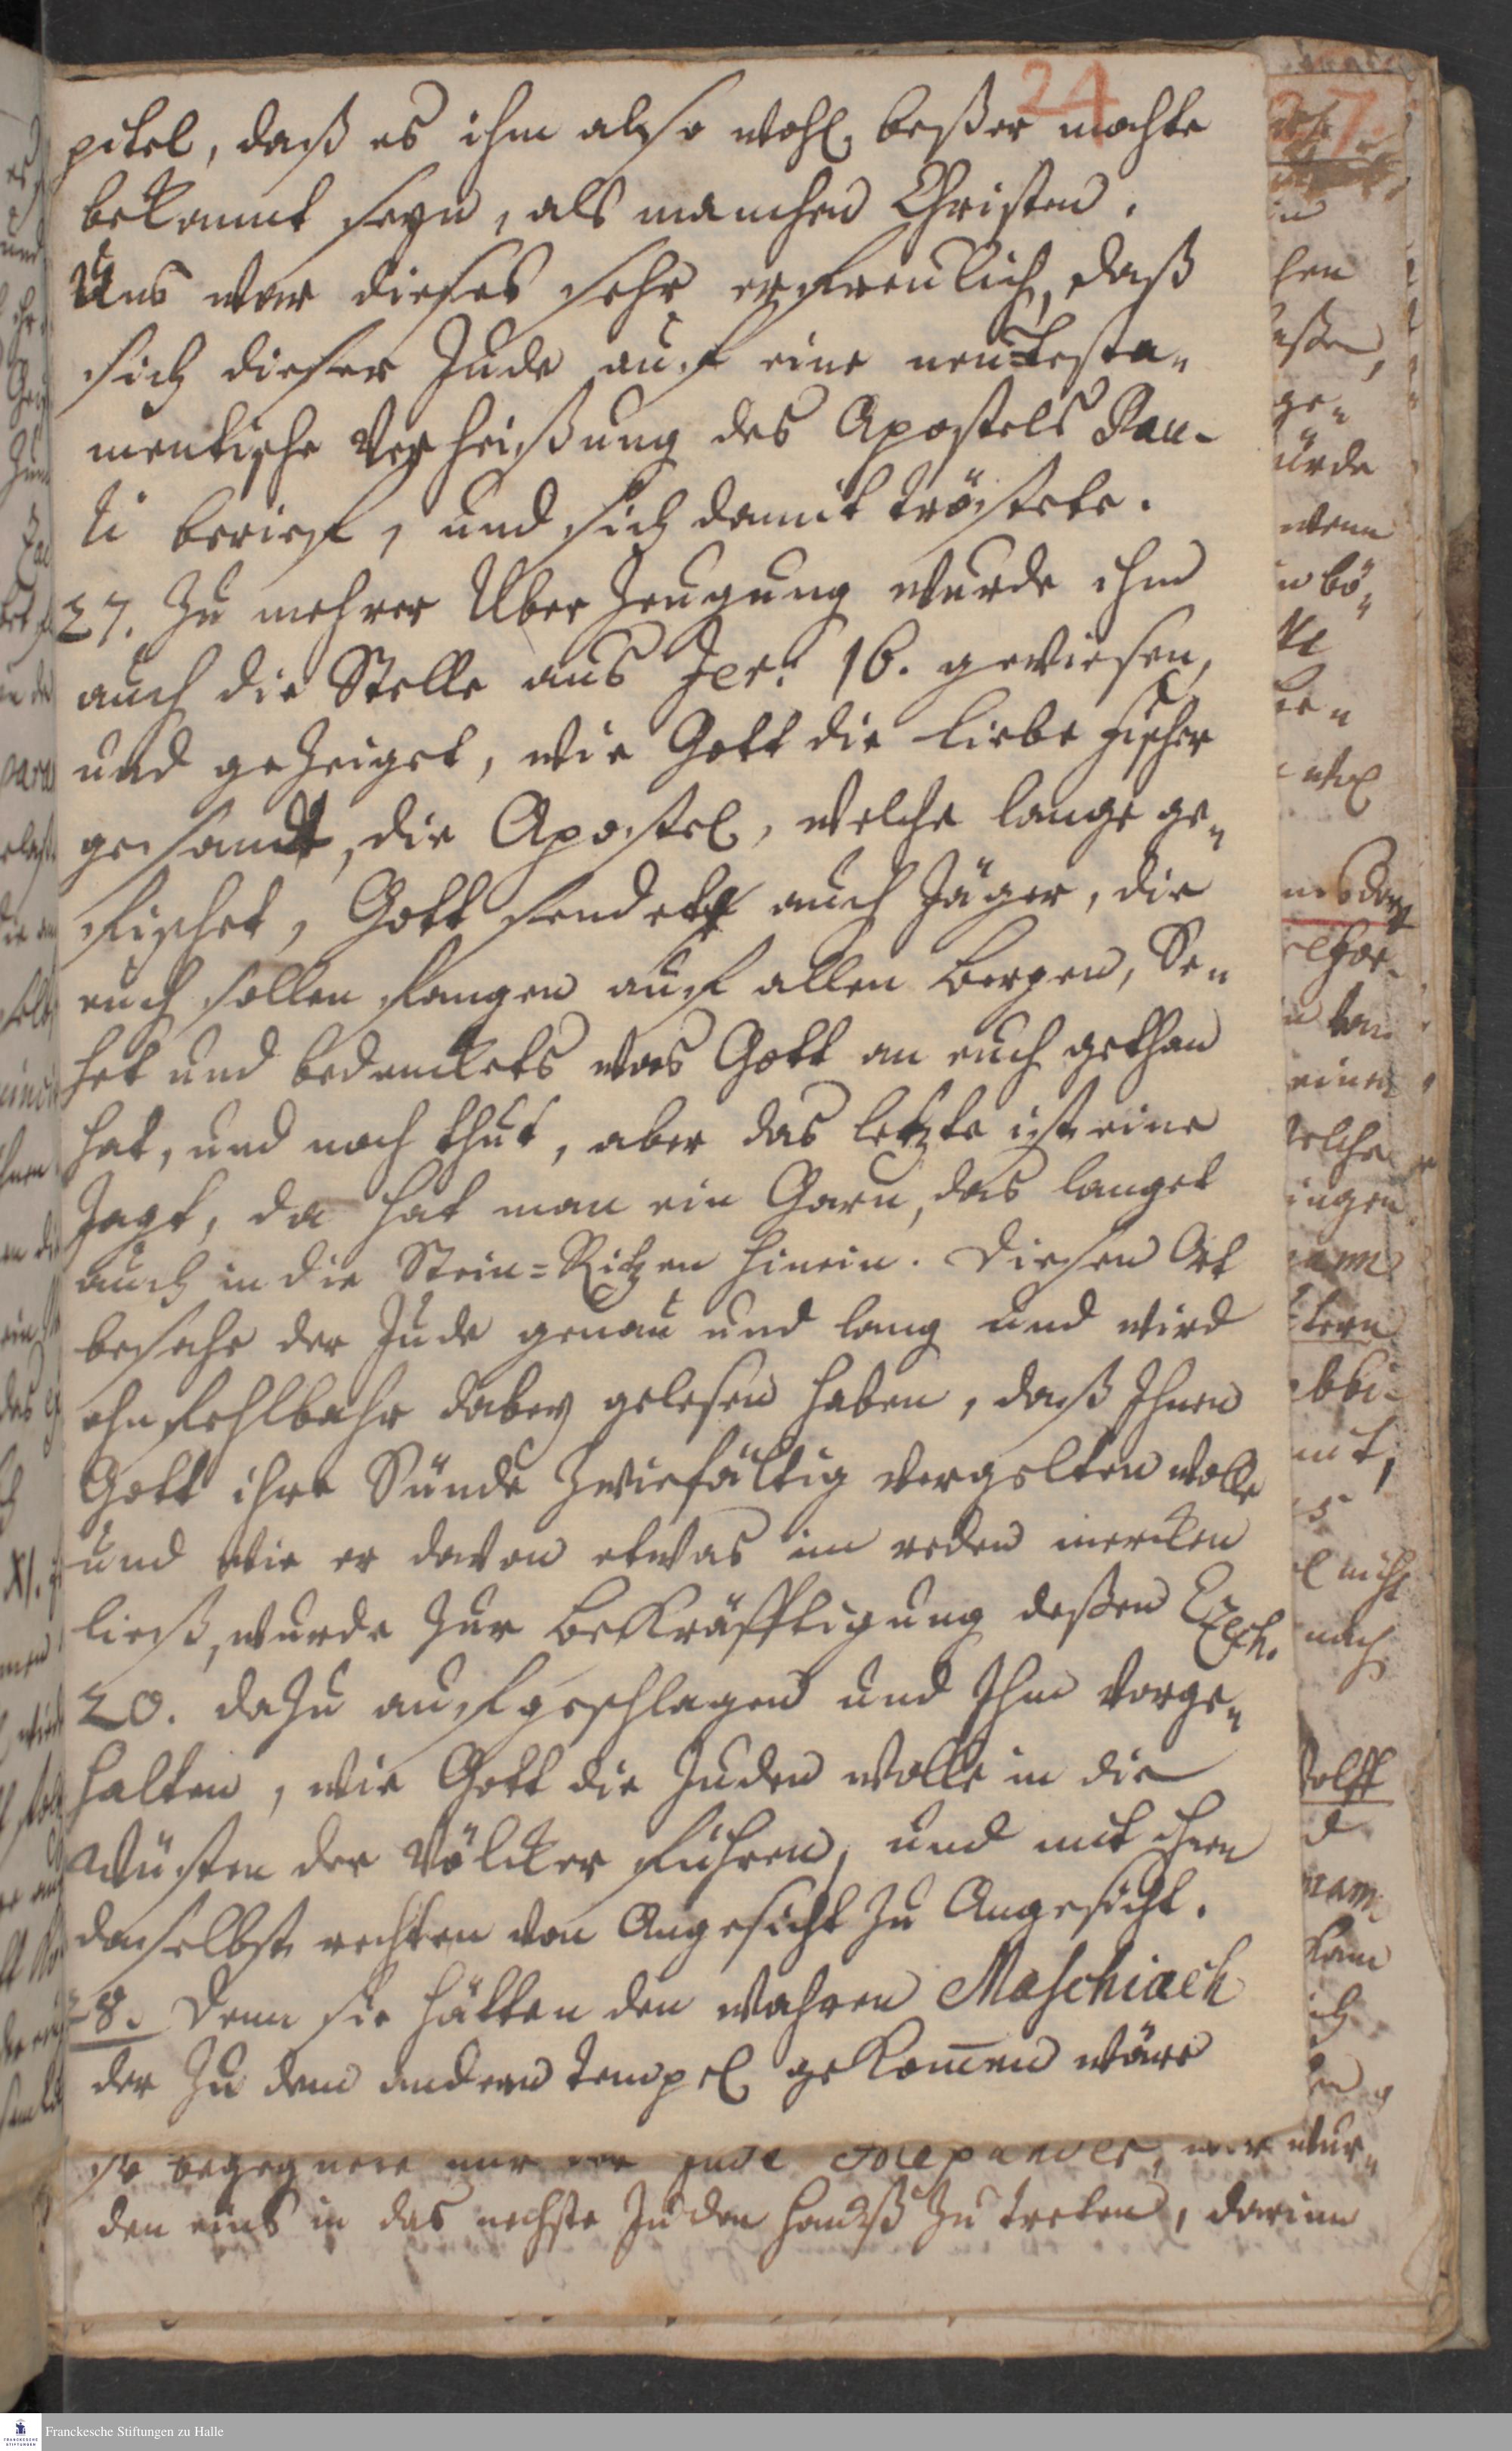 24
pitel, daß es ihm also wohl beßer mochte
bekannt seyn, als manchen Christen.
Uns war dieses sehr erfreulich, daß
sich dieser Jude auf eine neu-testa-
mentische Verheißung des Apostels Pau-
li berief, und sich damit tröstete.
27. Zu mehrer Überzeugung wurde ihm
auch die Stelle aus Jer: 16. gewiesen,
und gezeiget, wie Gott die liebe Fischer
gesandt, die Apostel, welche lange ge-
fischet, Gott sendete auch Jäger, die
euch sollen fangen auf allen Bergen, Se-
het und bedencket was Gott an euch gethan
hat, und noch thut, aber das letzte ist eine
Jagt, da hat man ein Garn, das langet
auch in die Stein-Ritzen hinein. Diesen Ort
besahe der Jude genau und lang und wird
ohnfehlbahr dabey gelesen haben, daß Ihnen
Gott ihre Sünde zwiefältig vergelten wolle
und wie er davon etwas im reden mercken
ließ, wurde zur Bekräfftigung deßen Ezech.
20. dazu aufgeschlagen und Ihm vorge-
halten, wie Gott die Juden wolle in die
Wüsten der Völcker führen, und mit ihnen
daselbst rechten von Angesicht zu Angesicht.
28. Denn sie hätten den wahren Maschiach
der zu dem andern Tempel gekom̄en wäre
so begegnete mir der Jude wir wur-
den eins in das nechste Juden Hauß zu treten, darinn
Franckesche Stiftungen zu Halle